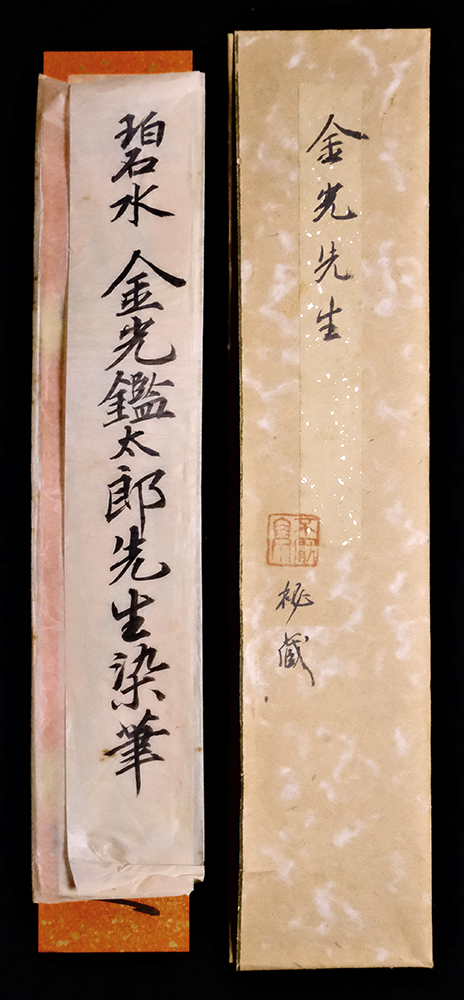 金光先生
秘蔵
碧水 金光鑑太郎先生染筆